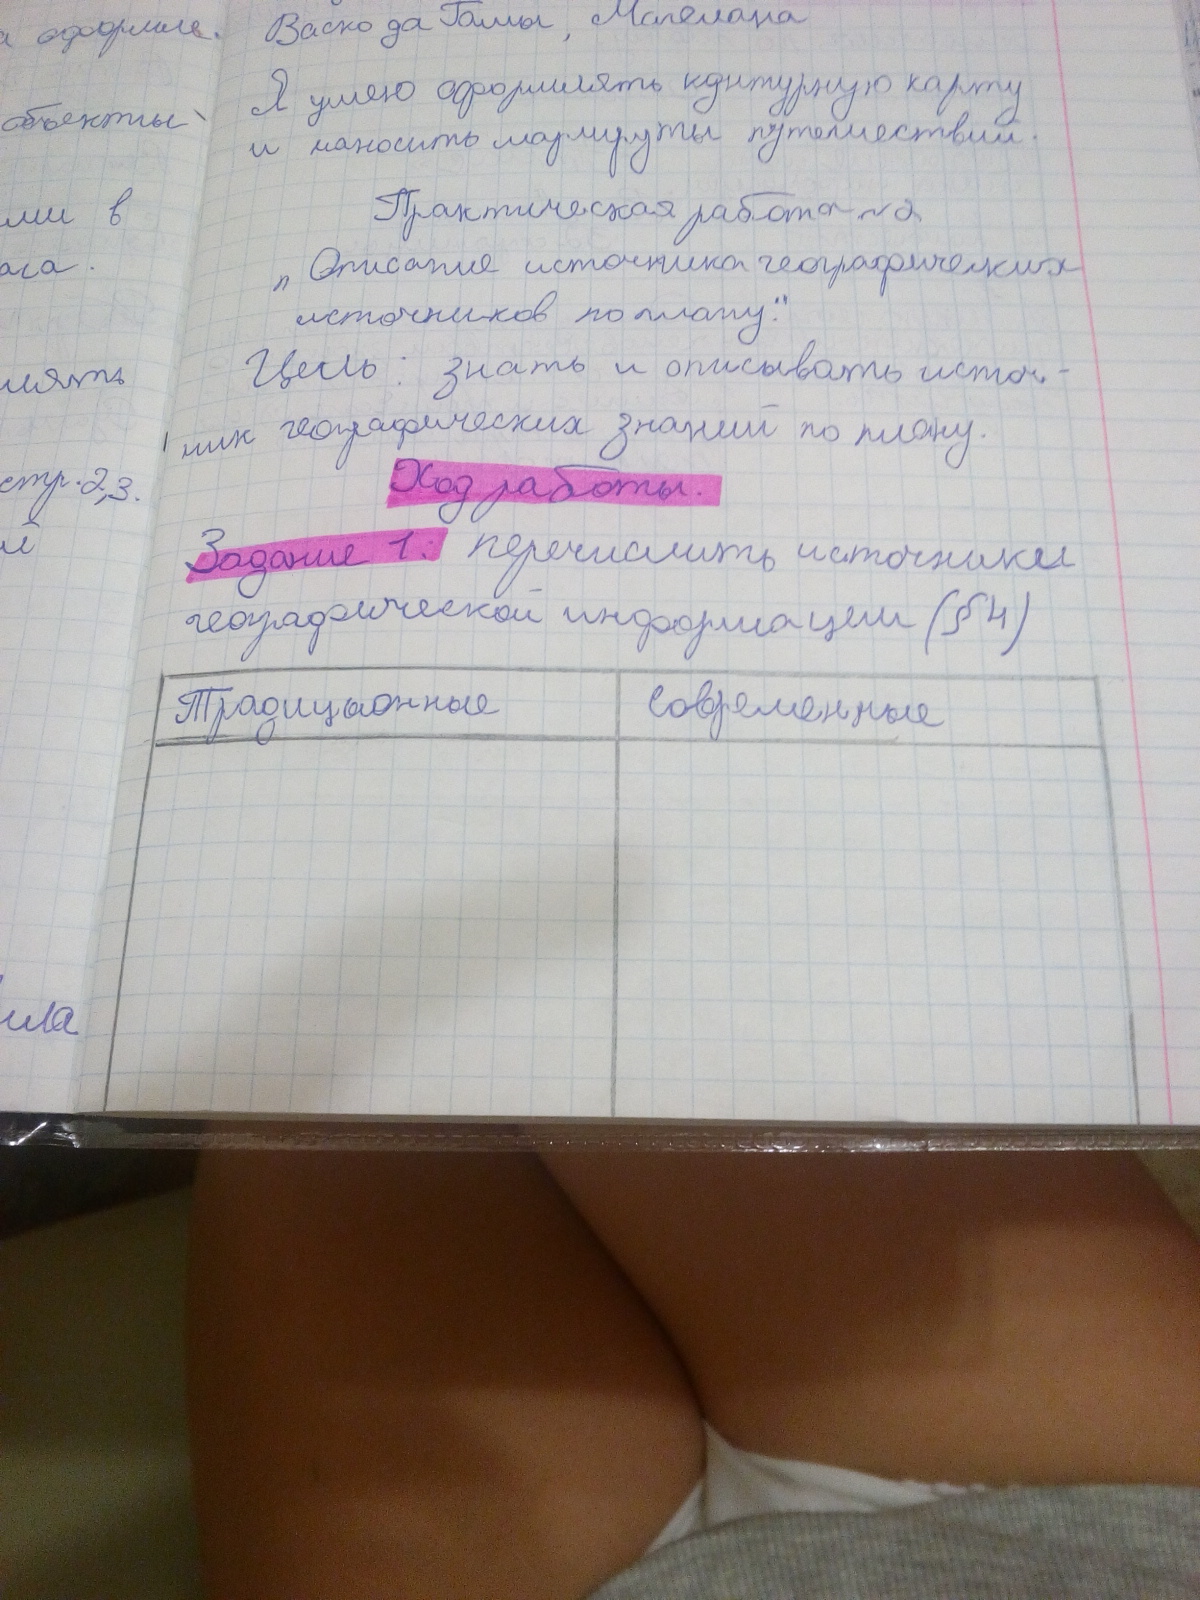 а оформле.
объекты
ми в
ага.
лять
стр. 2,3.
й
ила
Васко да Гамы, Магеллана
Я умею оформлять контурную карту
и наносить маршруты путешествий.
Практическая работа №2
„Описание источника географических
источников по плану."
Цель: знать и описывать источ-
ник географических знаний по плану.
Ход работы.
Задание 1: перечислить источники
географической информации (§4)
Традиционные
Современные